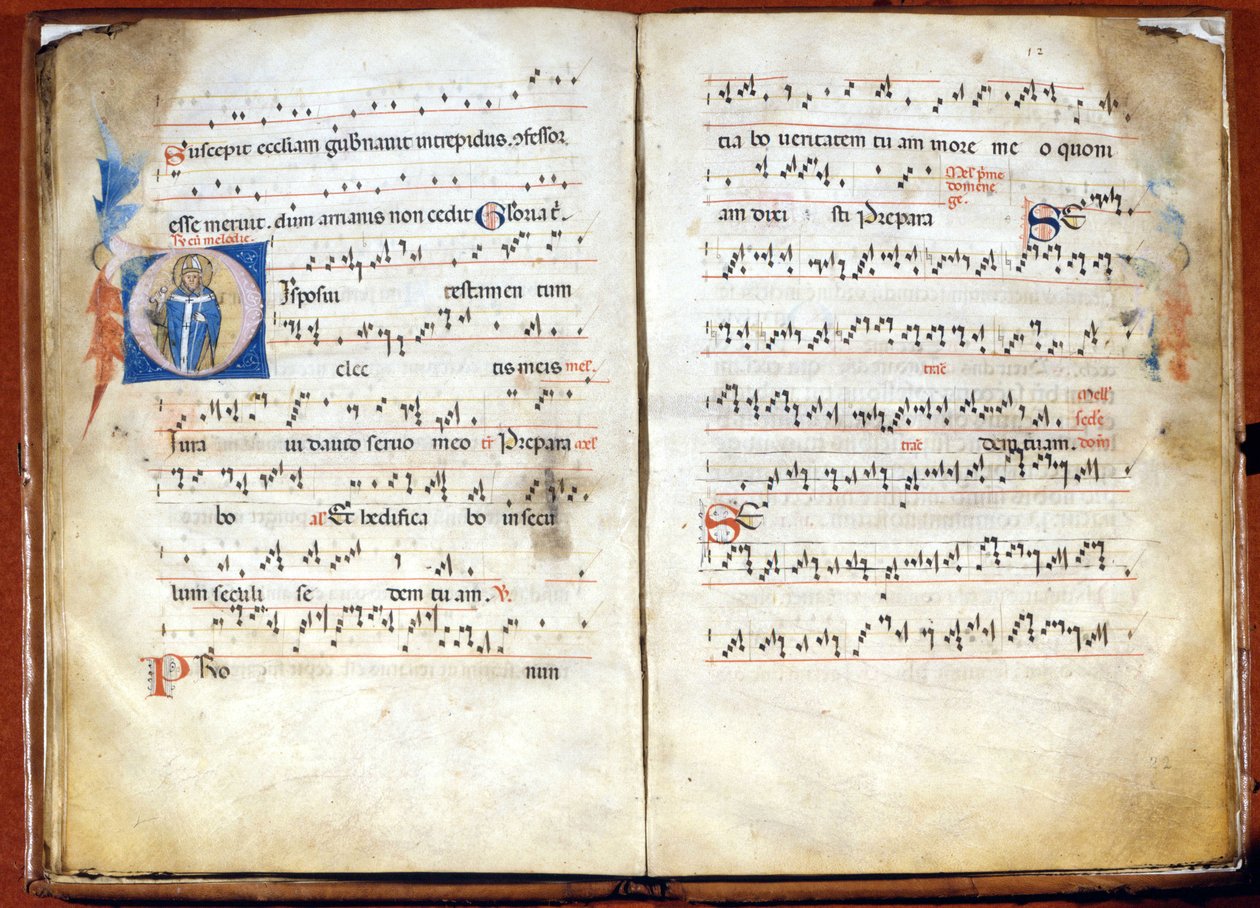 Suscepit eccliam gubnauit intrepidus. ꝯfessor
esse meruit. dum arrianis non cedit Gloria t.
Ry cū melodie.
Isposui testamen tum
elec tis meis mel.
Iura ui dauid seruo meo Prepara mel
bo Et hedifica bo in secu
lum seculi se dem tu am. V.
PRo nun
12
tia bo ueritatem tu am in ore me o quoni
am dixi sti Prepara
Mel. pͥme
domēne
ge.
SE
trac̄
Mell'
sede
trac̄ dem tu am. dom̄
SE